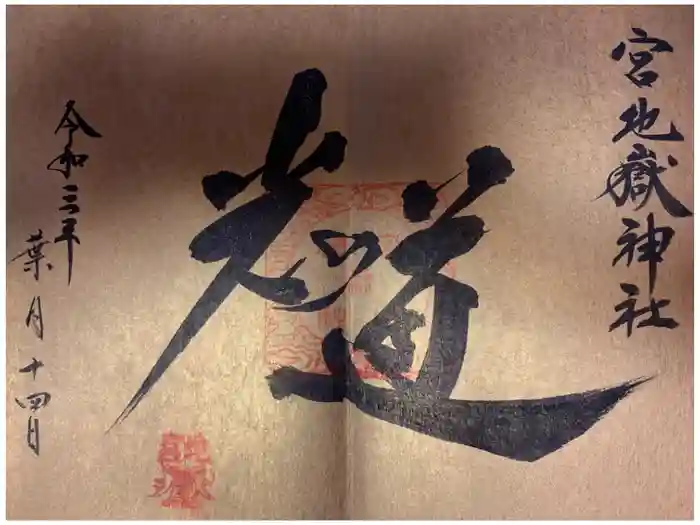 宮地嶽神社
光道
令和三年
葉月十四日